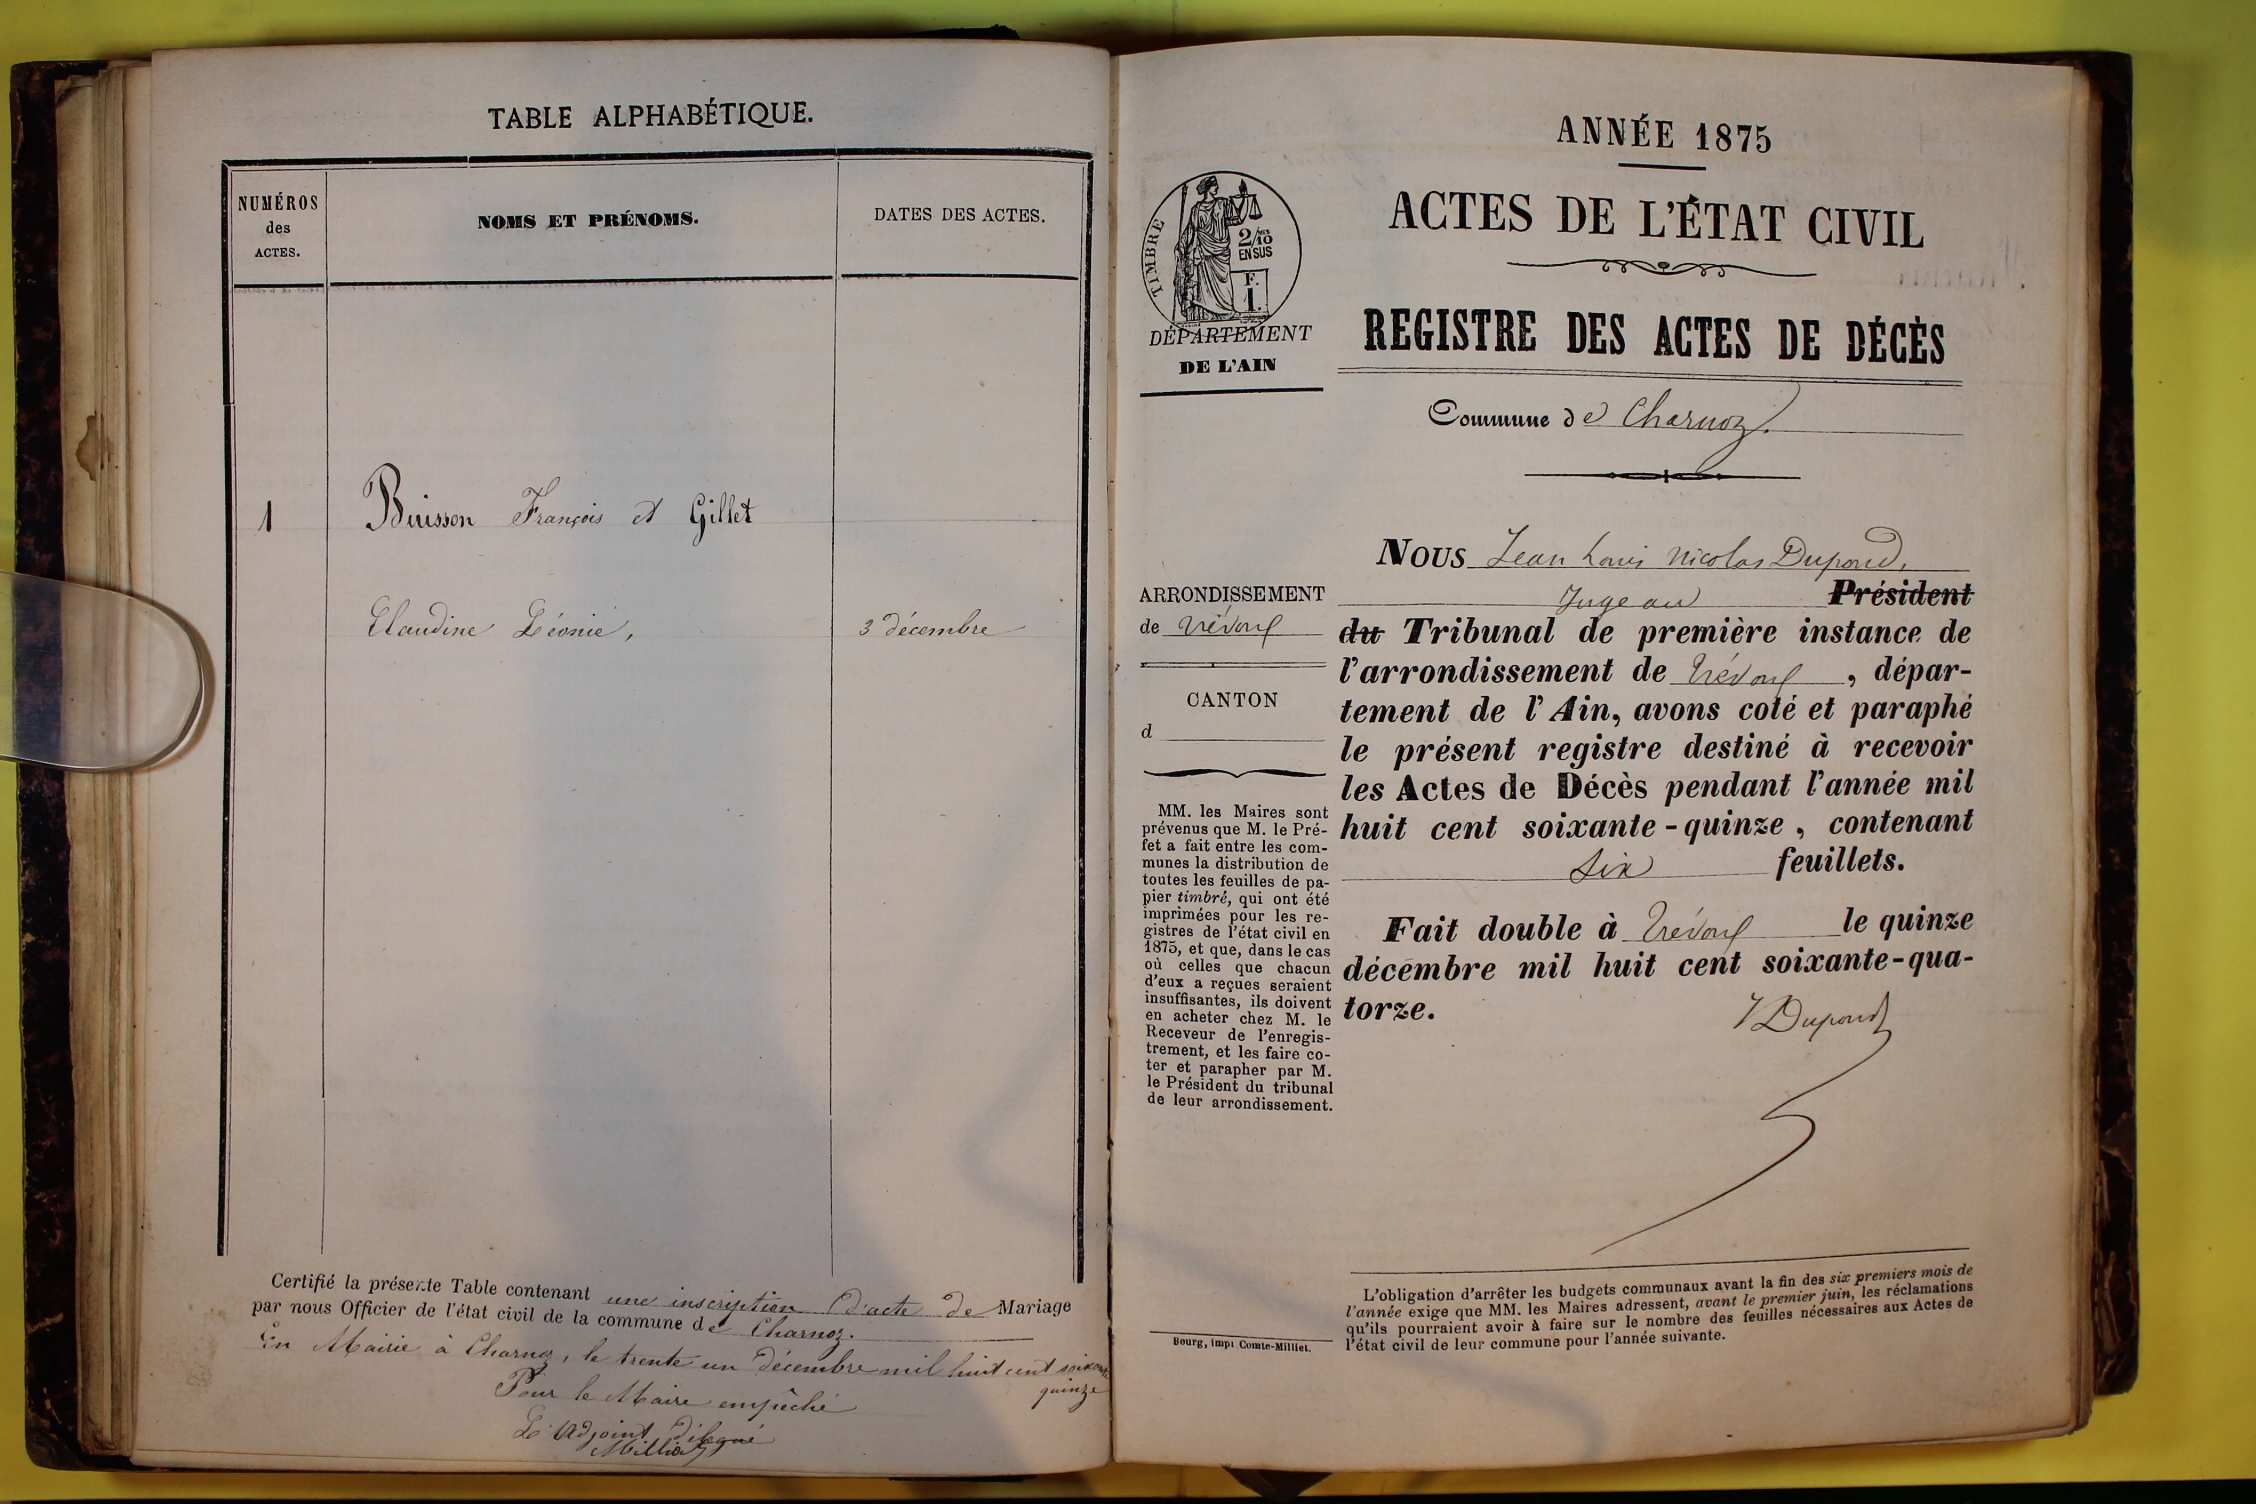 TABLE ALPHABÉTIQUE.
NUMÉROS
des
ACTES.
NOMS ET PRÉNOMS.
DATES DES ACTES.
1
Buisson François et Gillet
Claudine Léonie,
3 décembre
Certifié la présente Table contenant une inscription d'acte de Mariage
par nous Officier de l'état civil de la commune de Charnoz.
En Mairie à Charnoz, le trente un décembre mil huit cent soixante
quinze
Pour le Maire empêché
L'Adjoint délégué
ANNÉE 1875
ACTES DE L'ÉTAT CIVIL
REGISTRE DES ACTES DE DÉCÈS
TIMBRE
2/10
EN SUS
F.
1.
DÉPARTEMENT
DE L'AIN
Commune de Charnoz.
ARRONDISSEMENT
de Trévoux
CANTON
d
MM. les Maires sont
prévenus que M. le Pré-
fet a fait entre les com-
munes la distribution de
toutes les feuilles de pa-
pier timbré, qui ont été
imprimées pour les re-
gistres de l'état civil en
1875, et que, dans le cas
où celles que chacun
d'eux a reçues seraient
insuffisantes, ils doivent
en acheter chez M. le
Receveur de l'enregis-
trement, et les faire co-
ter et parapher par M.
le Président du tribunal
de leur arrondissement.
Bourg, impr Comte-Milliet.
Nous Jean Louis Nicolas Dupond,
Juge au Président
du Tribunal de première instance de
l'arrondissement de Trévoux, dépar-
tement de l'Ain, avons coté et paraphé
le présent registre destiné à recevoir
les Actes de Décès pendant l'année mil
huit cent soixante-quinze, contenant
six feuillets.
Fait double à Trévoux le quinze
décembre mil huit cent soixante-qua-
torze.
Dupond
L'obligation d'arrêter les budgets communaux avant la fin des six premiers mois de
l'année exige que MM. les Maires adressent, avant le premier juin, les réclamations
qu'ils pourraient avoir à faire sur le nombre des feuilles nécessaires aux Actes de
l'état civil de leur commune pour l'année suivante.